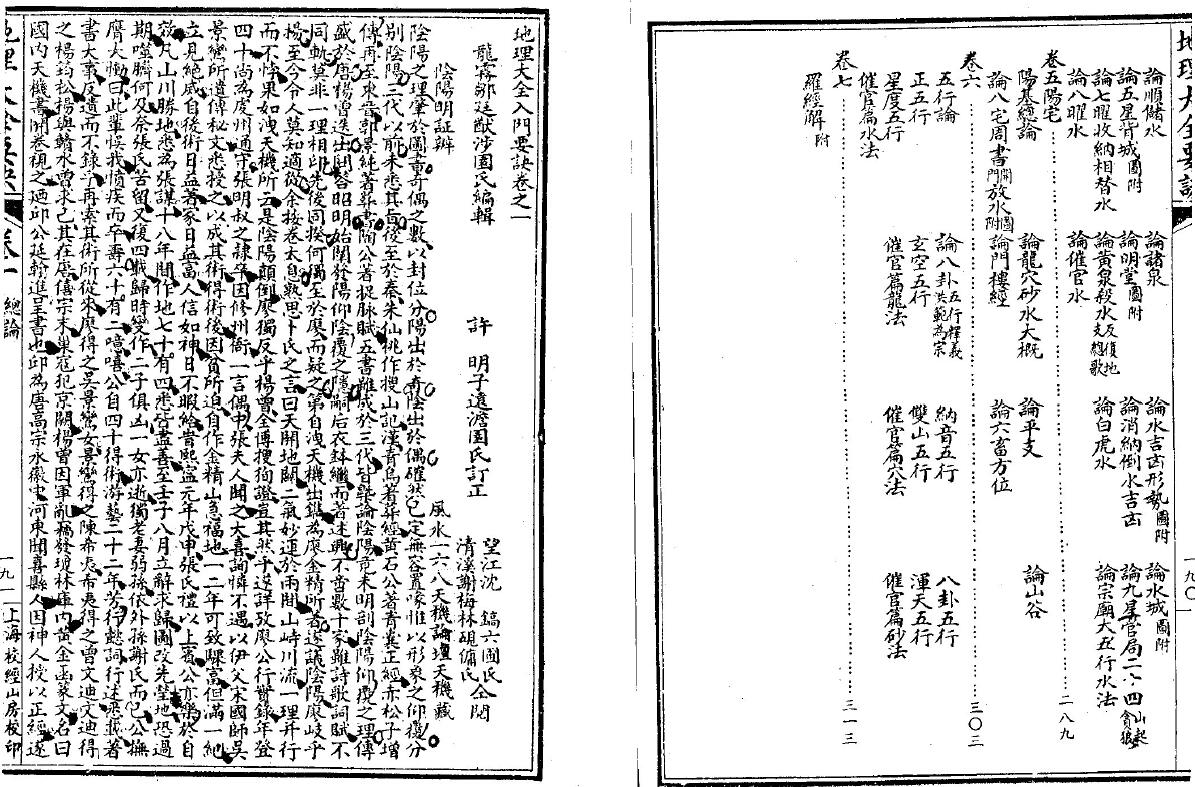 地理大全要訣
論順儲水
論諸泉
論水吉凶形勢圖附
論水城圖附
論五星背城圖附
論明堂圖附
論消納倒水吉凶
論九星官局二
論七曜收納相替水
論黃泉殺水
論白虎水
論宗廟大五行水法
論八曜水
論催官水
卷五陽宅
二八九
陽基總論
論龍穴砂水大概
論平支
論山谷
論八宅周書
放水圖附
論門樓經
論六畜方位
卷六
三〇三
五行論
論八卦五行釋義 洪範為宗
納音五行
八卦五行
正五行
玄空五行
雙山五行
渾天五行
星度五行
催官篇龍法
催官篇穴法
催官篇砂法
催官篇水法
卷七
三一三
羅經解附
一九〇
地理大全入門要訣卷之一
龍霧鄒廷猷涉園氏編輯
許 明子遠澹園氏訂正
望江沈 鎬六圃氏
清溪謝梅林砠傭氏
仝閱
陰陽明証辨
風水一六八天機論壇天機藏
陰陽之理肇於圖書奇偶之數以卦位分陽出於奇陰出於偶確然已定無容置喙惟以形象之仰覆分
別陰陽三代以前未悉其旨後至於秦朱仙桃作搜山記漢青烏著葬經黃石公著青囊正經赤松子增
傳再至東晉郭景純著葬書陶公著捉脉賦五書雖盛於三代皆槩論陰陽竟未明剖陰陽仰覆之理傳
盛於唐楊曾迭出問答昭明始闡發陽仰陰覆之隱嗣后衣鉢繼而著述興不啻數十家雖詩歌詞賦不
同軌莫非一理相印先後同揆何獨至於廖而疑之第自洩天機出鑑為廖金精所著遂議陰陽廖岐乎
楊至今令人莫知適從余接卷太息歎思卜氏之言曰天開地闢二氣妙運於兩間山峙川流一理并行
而不悖果如洩天機所云是陰陽顛倒廖獨反乎楊曾全傳搜狗證豈其然乎遂詳攷廖公行實錄年登
四十尚為虔州通守張明叔之隸卒因修州衙一言偶中張夫人聞之大喜詢憐不遇以伊父宋國師吳
景鸞所遺傳秘文悉授之以成其術得術後因貧所迫自作金精山急福地一二年可致驟富但滿一紀
立見絕威自後術日益著家日益富人信如神日不暇給嘗熙寧元年戊申張氏禮以上賓公亦樂於自
效凡山川勝地悉為張謀十八年間作地七十有四悉皆盡善至壬子八月立辭求歸圖改先塋地恐過
期噬臍何及奈張氏苦留又復四載歸時變作二子俱凶一女亦逝獨老妻弱孫依外孫謝氏而已公撫
膺大慟曰此輩悞我憤疾而卒壽六十有二噫嘻公自四十得術游藝二十二年芳行懿詞行述悉載著
書大事反遺而不錄乎再索其術所從來廖得之吳景鸞女景鸞得之陳希夷希夷得之曾文迪文迪得
之楊筠松楊與贛水曾求己其在唐僖宗末巢寇犯京闕楊曾因軍亂竊發瓊林庫內黃金函篆文名曰
國內天機書開卷視之迺邱公延翰進呈書也邱為唐高宗永徽中河東聞喜縣人因神人授以正經遂
卷一 總論
一九一
上海校經山房校印